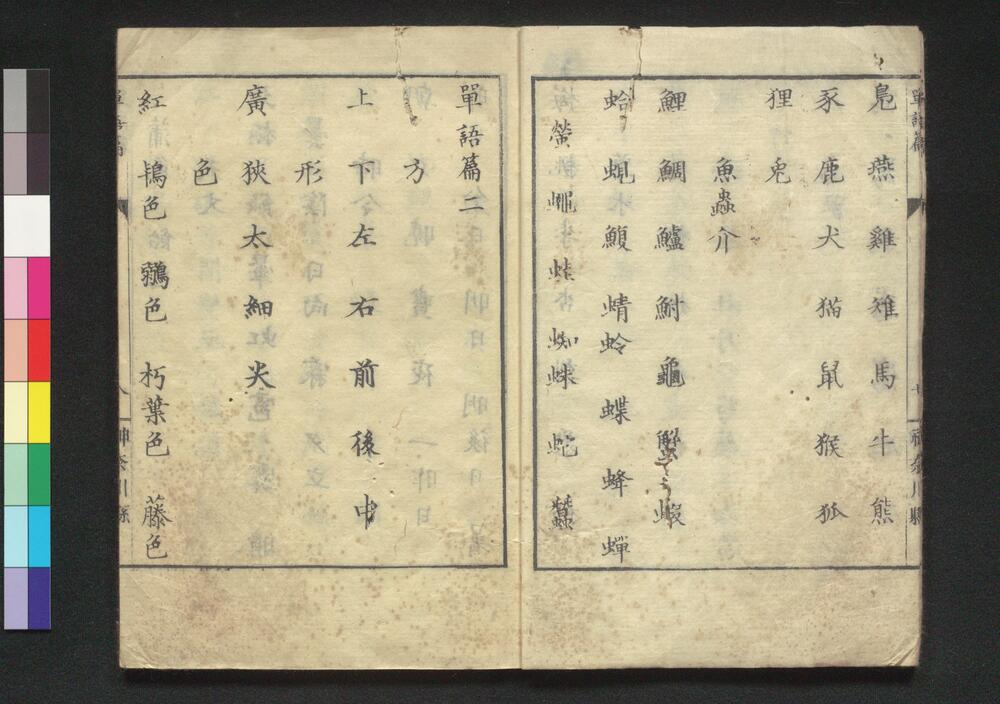 單語篇 七 神奈川縣
鳬 燕 雞 雉 馬 牛 熊
豕 鹿 犬 猫 鼠 猴 狐
狸 兎
魚蟲介
鯉 鯛 鱸 鮒 龜 蟹 蝦
蛤 蜆 鰒 蜻蛉 蝶 蜂 蟬
螢 蠅 蛙 蜘蛛 蛇 蠶
單語篇二
方
上 下 左 右 前 後 中
形
廣 狹 太 細 尖
色
紅 鴇色 鶸色 朽葉色 藤色
八 神奈川縣